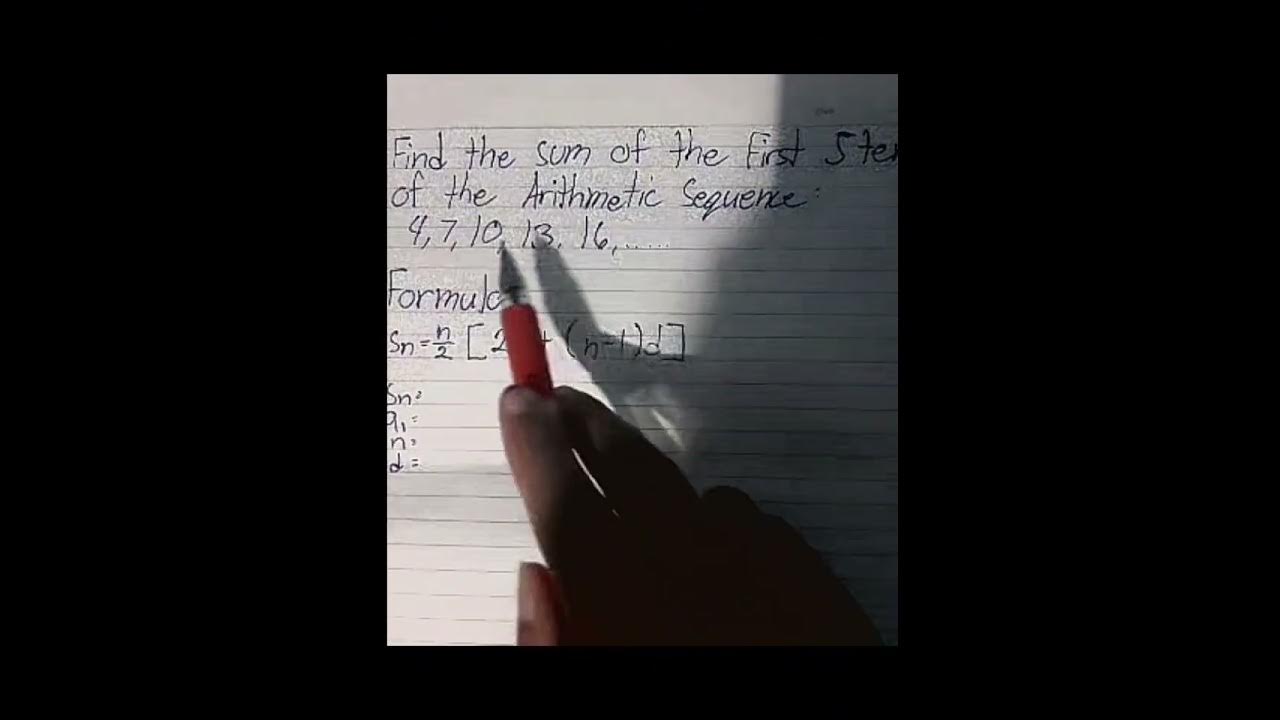 Find the sum of the First 5
of the Arithmetic Sequence:
4, 7, 10, 13, 16, .....
Formula
Sn = n/2 [2 + (n-1)d]
Sn =
a₁ =
n =
d =